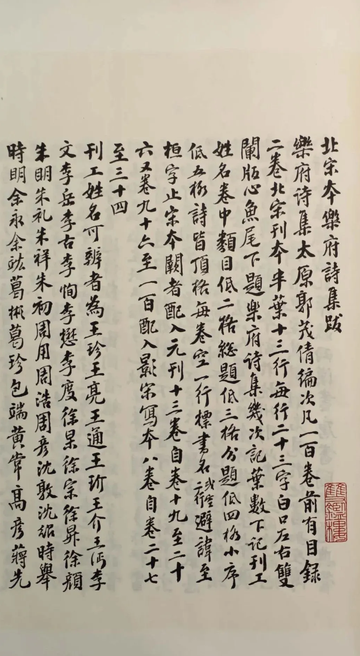 北宋本樂府詩集跋
樂府詩集太原郭茂倩編次凡一百卷前有目錄
二卷北宋刊本半葉十三行每行二十三字白口左右雙
闌版心魚尾下題樂府詩集幾次記葉數下記刊工
姓名卷中類目低二格總題低三格分題低四格小序
低五格詩皆頂格每卷空一行標書名避諱至
桓字止宋本闕者配入元刊十三卷自卷十九至二十
六又卷九十六至一百配入影宋寫本八卷自卷二十七
至三十四
刊工姓名可辨者為王珍王亮王通王玠王介王沔李
文李岳李古李恂李懋李度徐杲徐宗徐昇徐顏
朱明朱礼朱祥朱初周用周浩周彥沈敦沈紹時舉
時明余永余竑葛珍包端黃常高彥蔣先